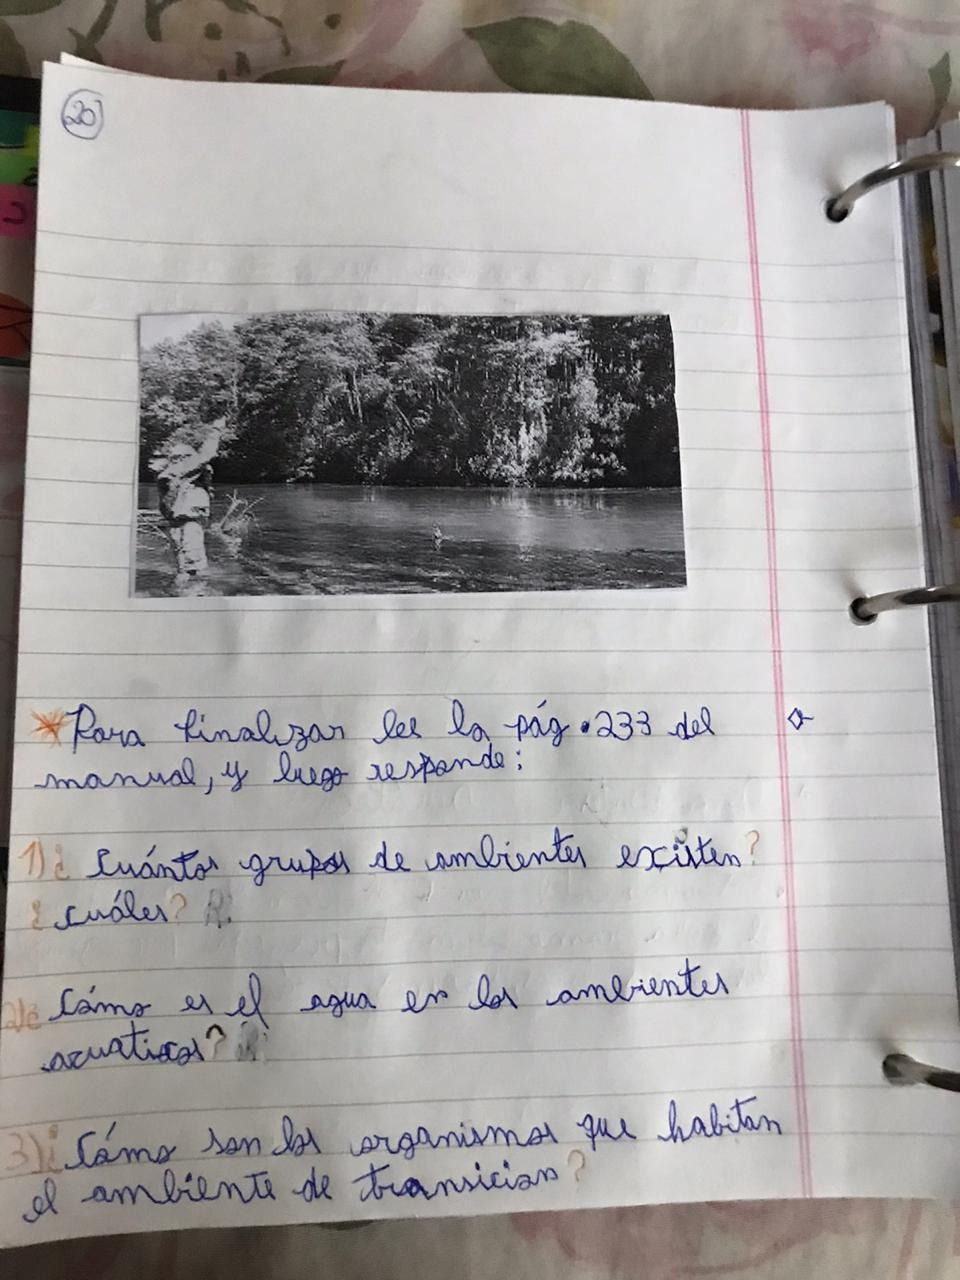 20
*Para finalizar lee la pág. 233 del
manual, y luego responde:
1) ¿Cuántos grupos de ambientes existen?
¿cuáles? R:
2)¿Cómo es el agua en los ambientes
acuaticos? R:
3)¿Cómo son los organismos que habitan
el ambiente de transicion?